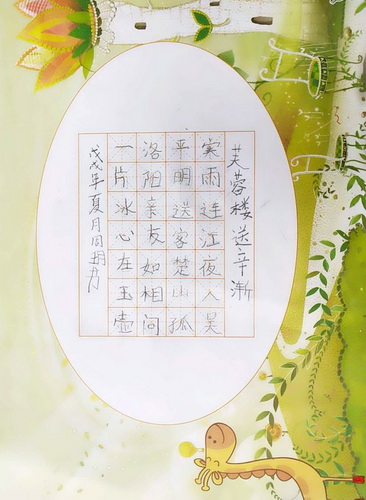 芙蓉楼送辛渐
寒雨连江夜入吴
平明送客楚山孤
洛阳亲友如相问
一片冰心在玉壶
戊戌年夏月周